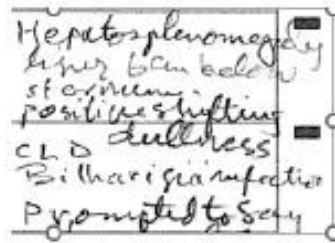 Hepatosplenomegaly
liver 6cm below
sternum.
positive shifting
dullness
CLD
Bilharigia infection
Prompted to say